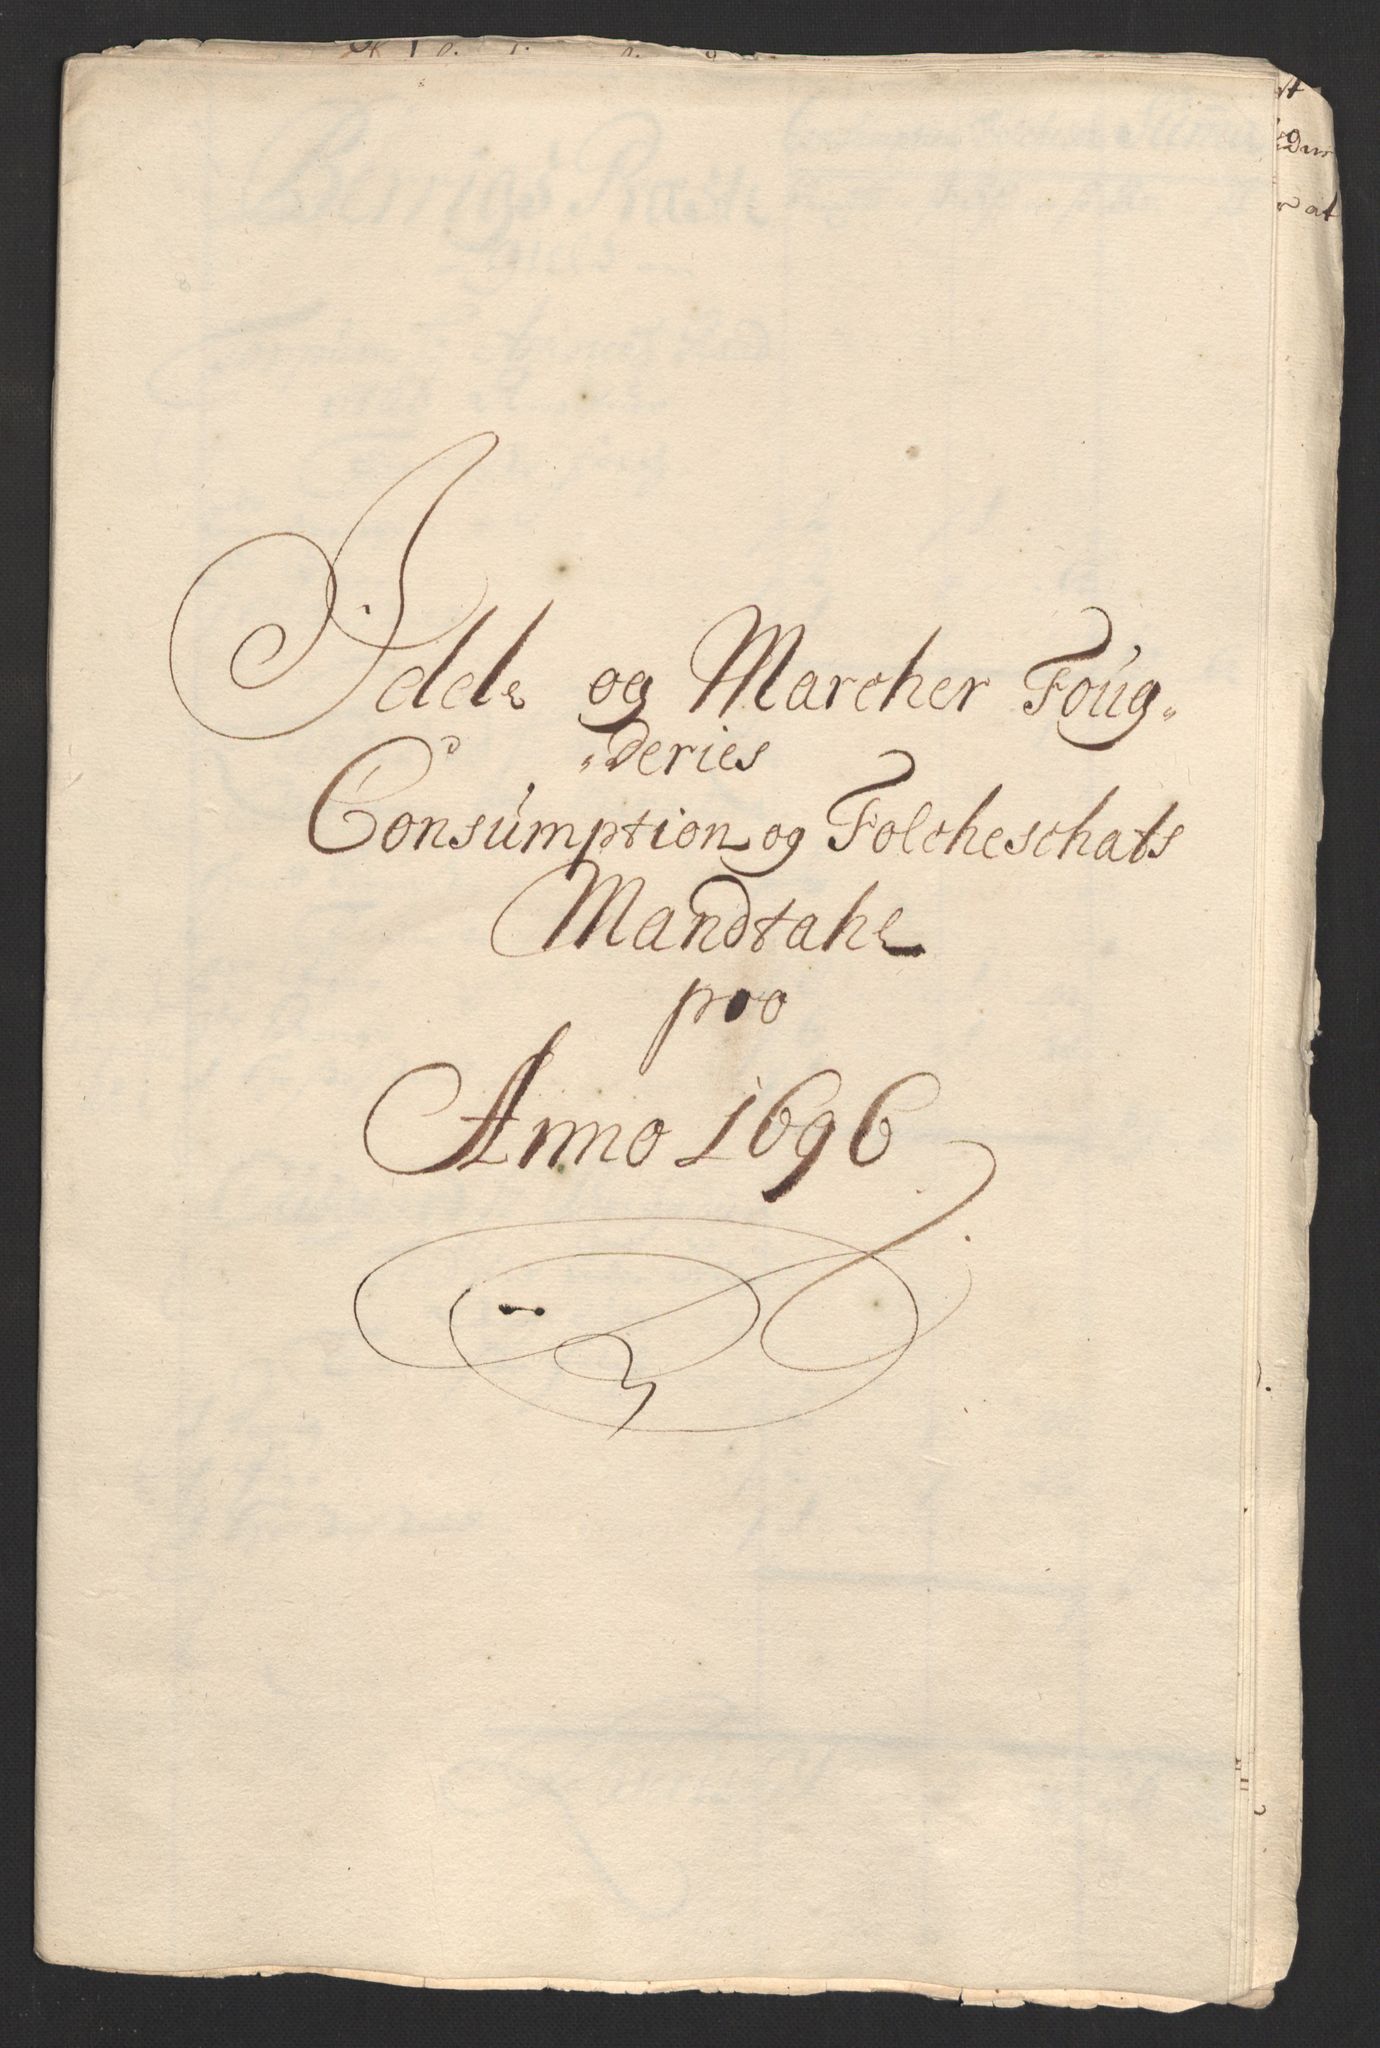 Idde og Marcher Foúg-
deries
Consúmption og Folcheschats
Mandtahl
pro
Anno 1696